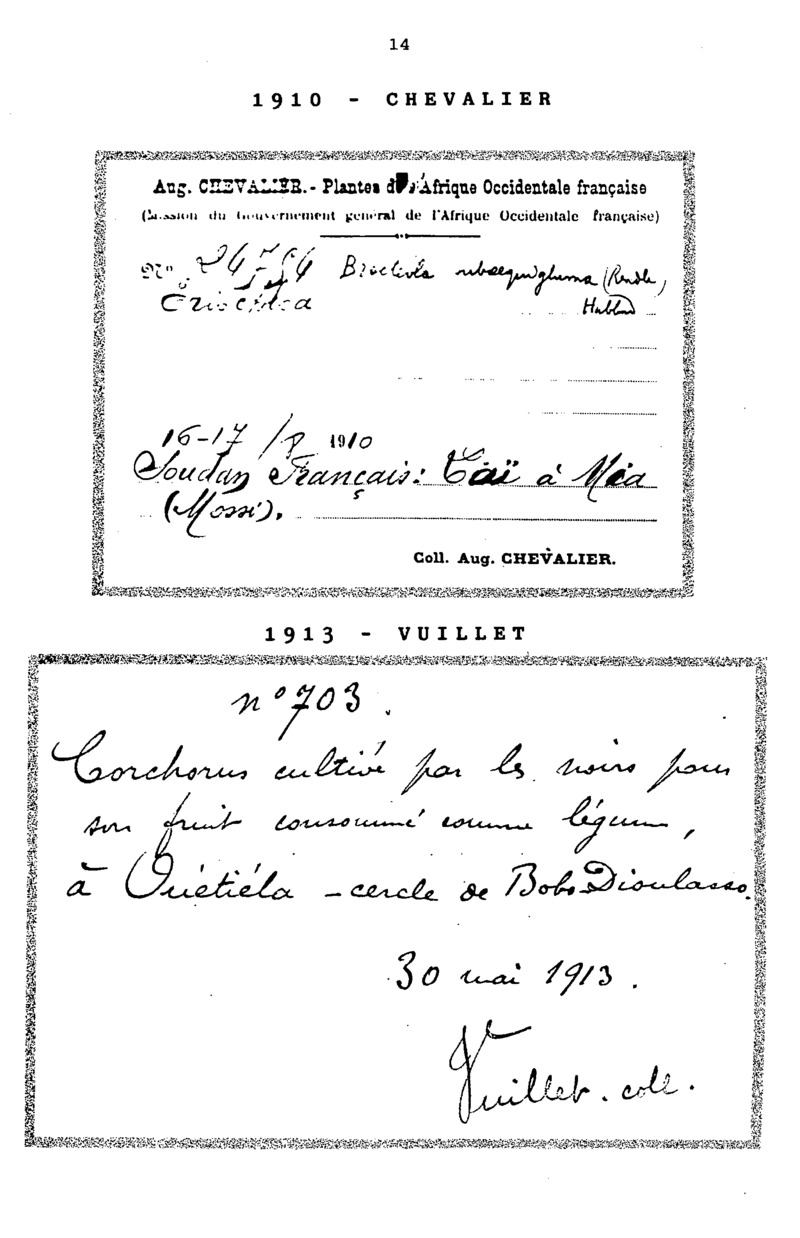 14
1910 - CHEVALIER
Aug. CHEVALIER. - Plantes de l'Afrique Occidentale française
(Mission du Gouvernement général de l'Afrique Occidentale française)
No subaequigluma (Rendle)
Hubbard
16-17 / 1910
Soudan Français: à
(Mossi).
Coll. Aug. CHEVALIER.
1913 - VUILLET
n° 703.
Corchorus cultivé par les noirs pour
son fruit consommé comme légume,
à Ouétiéla - cercle de Bobo-Dioulasso.
30 mai 1913.
Vuillet. coll.